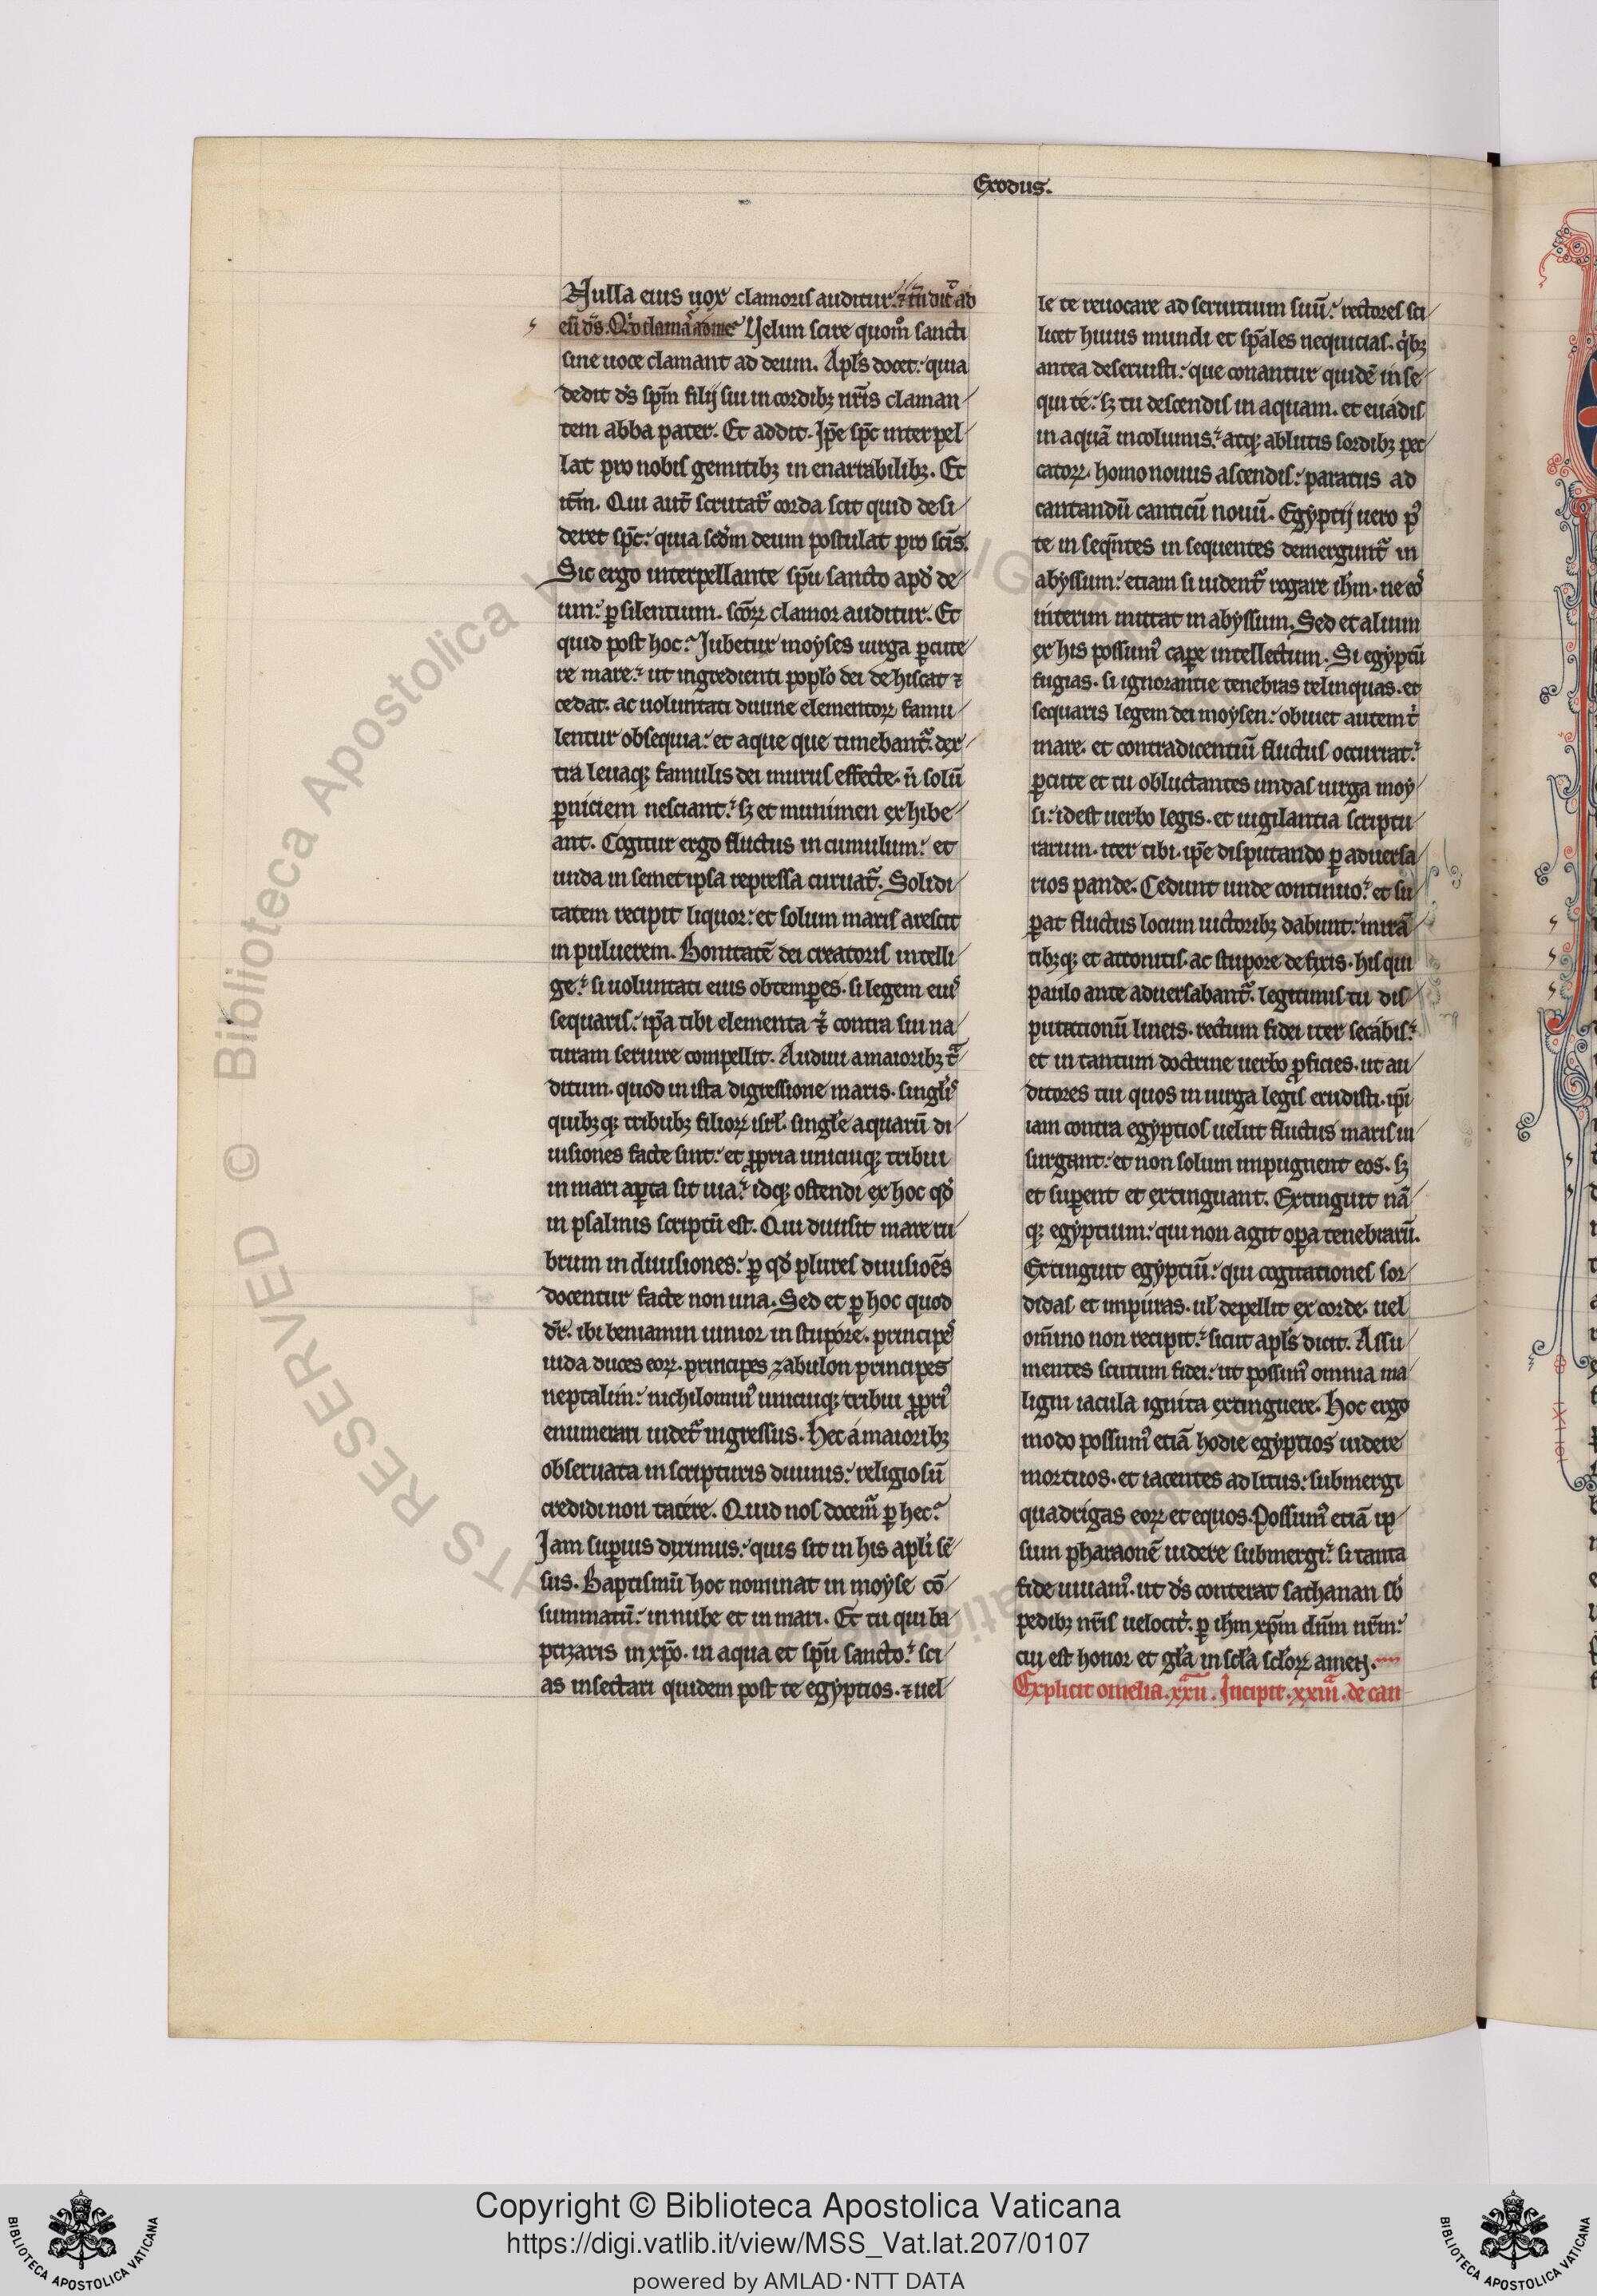 Exodus.
Nulla eius uox clamoris auditur. ⁊ tn̄ dic̄ ad
eū ds̄. Qͥd clamaˢ ad me? Uelim scire quom̊ sancti
sine uoce clamant ad deum. Apls̄ docet: quia
dedit ds̄ spm̄ filij sui in cordibꝫ nr̄is claman
tem abba pater. Et addit. Ip̄e spc̄ interpel
lat pro nobis gemitibꝫ in enarrabilibꝫ. Et
itm̄. Qui aut̄ scrutat᷑ corda scit quid desi
deret spc̄: quia scđm deum postulat pro scīs.
Sic ergo interpellante spū sancto apđ de
um: ꝑ silentium. scōꝝ clamor auditur. Et
quid post hoc? Jubetur moyses uirga ꝑcute
re mare: ut ingredienti poplo dei dehiscat ⁊
cedat. ac uoluntati diuine elementoꝝ famu
lentur obsequia: et aque que timebant᷑. dex
tra leuaqꝫ famulis dei murus effecte. n̄ solū
ꝑniciem nesciant: sꝫ et munimen exhibe
ant. Cogitur ergo fluctus in cumulum: et
unda in semet ipsa repressa curuat᷑. Solidi
tatem recipit liquor: et solum maris arescit
in puluerem. Bonitatē dei creatoris intelli
ge: si uoluntati eius obtemꝑes. si legem eiꝰ
sequaris: ip̄a tibi elementa ⁊ contra sui na
turam seruire compellit. Audiui a maioribꝫ t᷑
ditum. quod in ista digressione maris. singlis
quibꝫqꝫ tribubꝫ filioꝝ isrl̄. single aquarū di
uisiones facte sint: et ꝓpria unicuiqꝫ tribui
in mari aꝑta sit uia: idqꝫ ostendi ex hoc qđ
in psalmis scriptū est. Qui diuisit mare ru
brum in diuisiones: ꝑ qđ plures diuisioēs
docentur facte non una. Sed et ꝑ hoc quod
dr̄. ibi beniamin iunior in stupore. principes
iuda duces eoꝝ. principes zabulon principes
neptalim: nichilominꝰ unicuiqꝫ tribui ꝓpriꝰ
enumerari uidet᷑ ingressus. Hec a maioribꝫ
obseruata in scripturis diuinis: religiosū
credidi non tacere. Quid nos docem᷑ ꝑ hec?
Jam suꝑius diximus: quis sit in his apl̄i sē
sus. Baptismū hoc nominat in moyse cō
summatū: in nube et in mari. Et tu qui ba
ptizaris in xp̄o. in aqua et spū sancto: sci
as insectari quidem post te egyptios. ⁊ uel
le te reuocare ad seruitium suū: rectores sci
licet huius mundi et sp̄ales nequicias. qͥbꝫ
antea deseruisti: que conantur quidē inse
qui te: sꝫ tu descendis in aquam. et euadis
in aquā incolumis: atqꝫ ablutis sordibꝫ pec
catoꝝ. homo nouus ascendis: paratus ad
cantandū canticū nouū. Egyptij uero pꝰ
te in seqn̄tes in sequentes demergunt᷑ in
abyssum: etiam si uident᷑ rogare ihm̄. ne eos
interim mittat in abyssum. Sed et alium
ex his possumꝰ caꝑe intellectum. Si egyptū
fugias. si ignorantie tenebras relinquas. et
sequaris legem dei moysen: obuiet autem tͥ
mare. et contradicentiū fluctus occurrat:
ꝑcute et tu obluctantes undas uirga moy
si: idest uerbo legis. et uigilantia scriptu
rarum. iter tibi. ip̄e disputando ꝑ aduersa
rios pande. Cedunt unde continuo: et su
ꝑat fluctus locum uictoribꝫ dabunt: mirā
tibꝫqꝫ et attonitis. ac stupore defixis. his qui
paulo ante aduersabant᷑. legitimis tu dis
putationū lineis. rectum fidei iter secabis:
et in tantum doctrine uerbo ꝓficies. ut au
ditores tui quos in uirga legis erudisti. ip̄i
iam contra egyptios uelut fluctus maris in
surgant: et non solum impugnent eos. sꝫ
et suꝑent et extinguant. Extinguit nā
qꝫ egyptium: qui non agit oꝑa tenebrarū.
Extinguit egyptiū: qui cogitationes sor
didas et impuras. ul̄ depellit ex corde. uel
om̄ino non recipit: sicut apls̄ dicit. Assu
mentes scutum fidei: ut possimꝰ omnia ma
ligni iacula ignita extinguere. Hoc ergo
modo possumꝰ etiā hodie egyptios uidere
mortuos. et iacentes ad litus: submergi
quadrigas eoꝝ et equos. Possumꝰ etiā ip
sum pharaonē uidere submergi: si tanta
fide uiuamꝰ. ut ds̄ conterat sathanan sb̄
pedibꝫ nr̄is uelocit̄. ꝑ ihm̄ xpm̄ dn̄m nr̄m:
cui est honor et gl̄a in scl̄a scl̄oꝝ amen.
Explicit omelia .xxii. Jncipit .xxiii. de can
© Biblioteca Apostolica Vaticana
RIGHTS RESERVED
Copyright © Biblioteca Apostolica Vaticana
https://digi.vatlib.it/view/MSS_Vat.lat.207/0107
powered by AMLAD·NTT DATA
BIBLIOTECA APOSTOLICA VATICANA
BIBLIOTECA APOSTOLICA VATICANA